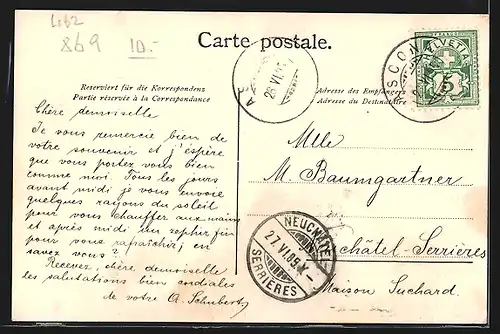 462
869 10.-
Carte postale.
Reserviert für die Korrespondenz
Partie réservée à la Correspondance
Adresse des Empfängers
Adresse du Destinataire
26 VI
ASCON
HELVETIA
FRANCO
5
Chère demoiselle
Je vous remercie bien de
votre souvenir et j'espère
que vous portez vous bien
comme moi. Tous les jours
avant midi je vous envoie
quelques rayons du soleil
pour vous chauffer aux mains
et après midi un zephir fin
pour vous rafraichir, en
savez vous?
Recevez, chère demoiselle
les salutations bien cordiales
de votre A. Schubert
Mlle
M. Baumgartner
Neuchâtel-Serrières
Maison Suchard.
NEUCHATEL
27.VI.05.X
SERRIÈRES